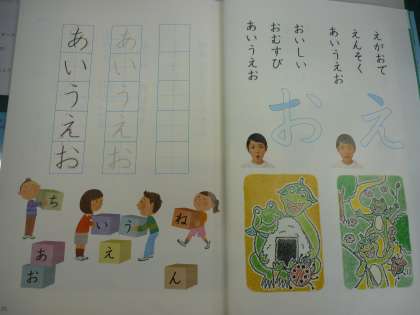 えがおで
えんそく
あいうえお
おいしい
おむすび
あいうえお
え
お
あいうえお
あいうえお
ち
い
う
ね
あ
え
お
ん